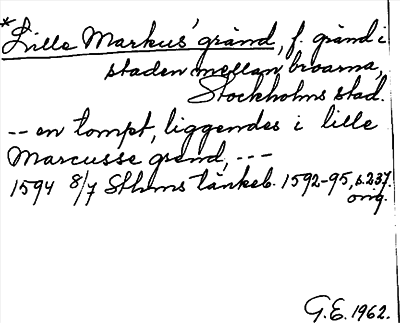 *Lille Markus' gränd, f. gränd i
staden mellan broarna,
Stockholms stad.
-- en tompt, liggendes i lille
Marcusse grend, ---
1594 8/7 Sthms tänkeb. 1592-95, s. 237.
orig.
G.E. 1962.